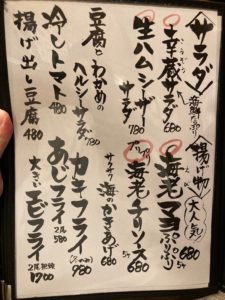 サラダ
海鮮たっぷり
幸蔵サラダ 680
生ハムシーザーサラダ 780
豆腐とわかめの
ヘルシーサラダ 780
冷しトマト 480
揚げ出し豆腐 480
揚げ物
大人気!
海老マヨ ぷりぷり 680
5ケ
プリプリ 海老チリソース 680
5ケ
サクサク 海のかきあげ 680
カキフライ 980
あじフライ 2尾 580
大きいエビフライ
1700